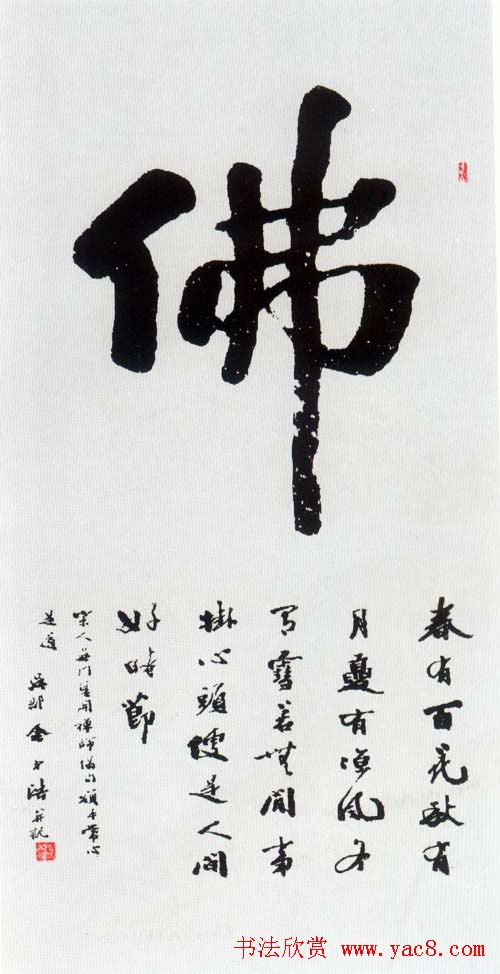 佛
春有百花秋有
月夏有凉風冬
有雪若無閒事
掛心頭便是人間
好時節
宋人無門慧開禅師偈句頌平常心
是道
书法欣赏 www.yac8.com